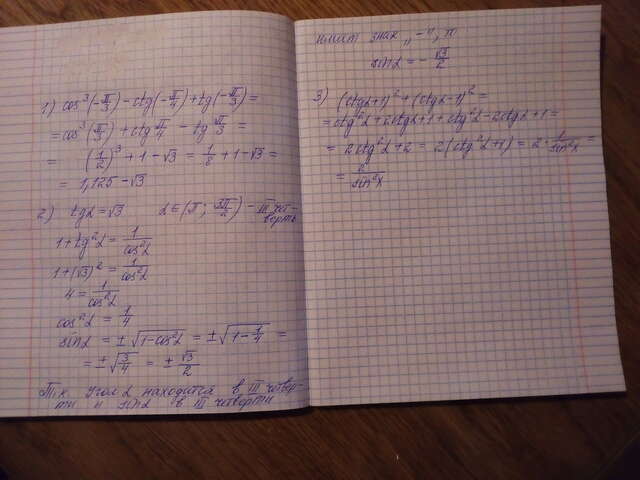 1) cos³(-π/3) - ctg(-π/4) + tg(-π/3) =
= cos³(π/3) + ctg π/4 - tg π/3 =
= (1/2)³ + 1 - √3 = 1/8 + 1 - √3 =
= 1,125 - √3
2) tgα = √3 α ∈ (π; 3π/2) - III чет-
верть
1 + tg²α = 1/cos²α
1 + (√3)² = 1/cos²α
4 = 1/cos²α
cos²α = 1/4
sinα = ± √(1-cos²α) = ± √(1 - 1/4) =
= ± √(3/4) = ± √3/2
Т.к угол α находится в III четвер-
ти и sinα в III четверти
имеет знак „-", то
sinα = - √3/2
3) (ctgα+1)² + (ctgα-1)² =
= ctg²α + 2ctgα + 1 + ctg²α - 2ctgα + 1 =
= 2ctg²α + 2 = 2(ctg²α + 1) = 2 · 1/sin²α =
= 2/sin²α